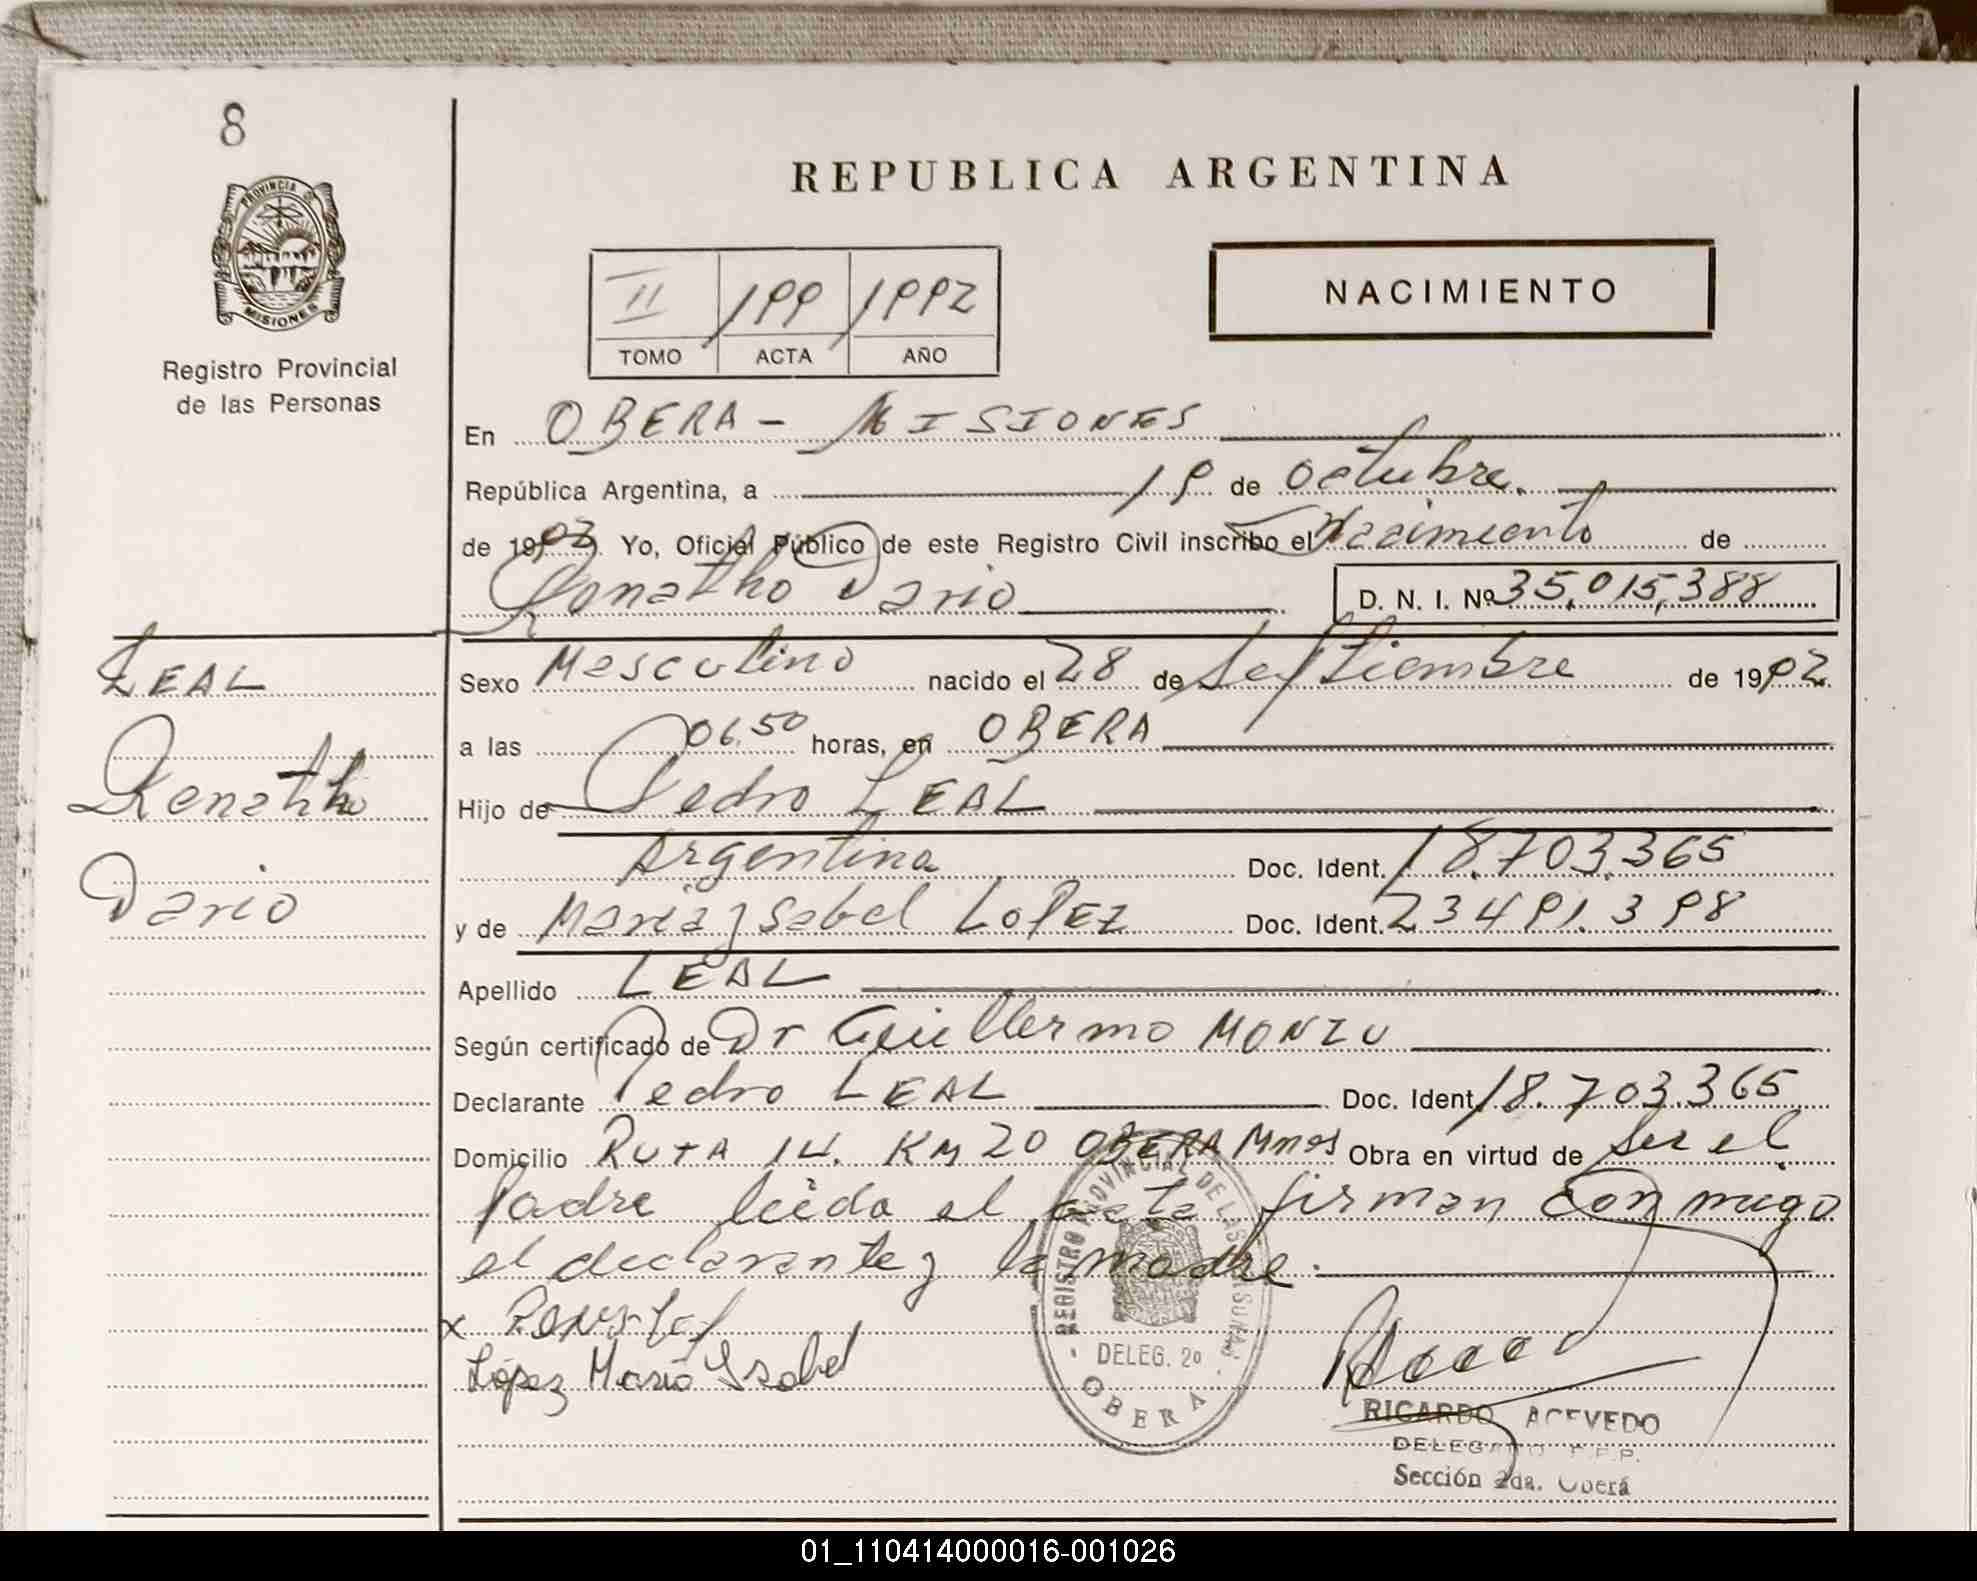 8
PROVINCIA DE
MISIONES
Registro Provincial
de las Personas
REPUBLICA ARGENTINA
II 199 1992
TOMO ACTA AÑO
NACIMIENTO
En OBERA - MISIONES
República Argentina, a 19 de octubre.
de 1992. Yo, Oficial Público de este Registro Civil inscribo el Nacimiento de
Renatho Dario D. N. I. Nº 35,015,388
LEAL
Renatho
Dario
Sexo Masculino nacido el 28 de Septiembre de 1992.
a las 06.50 horas, en OBERA
Hijo de Pedro LEAL
Argentina Doc. Ident. 18.703.365
y de Maria Ysabel LOPEZ Doc. Ident. 23491.398
Apellido LEAL
Según certificado de Dr Guillermo MONZU
Declarante Pedro LEAL Doc. Ident. 18.703.365
Domicilio RUTA 14. KM 20 OBERA Mnes Obra en virtud de ser el
Padre leida el acta firman conmigo
el declarante y la madre.
x
López Maria Isabel
REGISTRO PROVINCIAL DE LAS
DELEG. 2º
OBERA
RICARDO ACEVEDO
DELEGADO
Sección 2da. Oberá
01_110414000016-001026